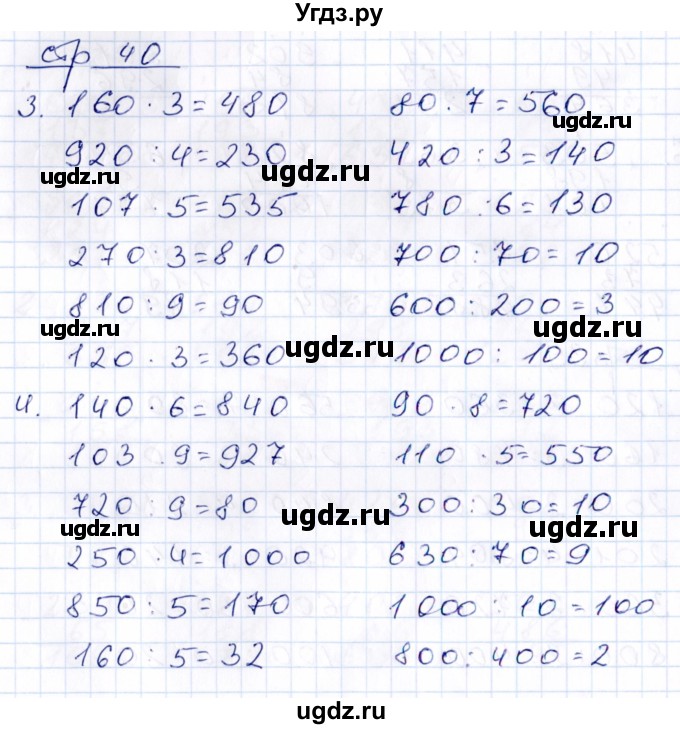 Угдз.ру
стр 40
3. 160 · 3 = 480 80 · 7 = 560
920 : 4 = 230 420 : 3 = 140
107 · 5 = 535 780 : 6 = 130
270 · 3 = 810 700 : 70 = 10
810 : 9 = 90 600 : 200 = 3
120 · 3 = 360 1000 : 100 = 10
4. 140 · 6 = 840 90 · 8 = 720
103 · 9 = 927 110 · 5 = 550
720 : 9 = 80 300 : 30 = 10
250 · 4 = 1000 630 : 70 = 9
850 : 5 = 170 1000 : 10 = 100
160 : 5 = 32 800 : 400 = 2
ugdz.ru
ugdz.ru
ugdz.ru
ugdz.ru
ugdz.ru
ugdz.ru
ugdz.ru
ugdz.ru
ugdz.ru
ugdz.ru
ugdz.ru